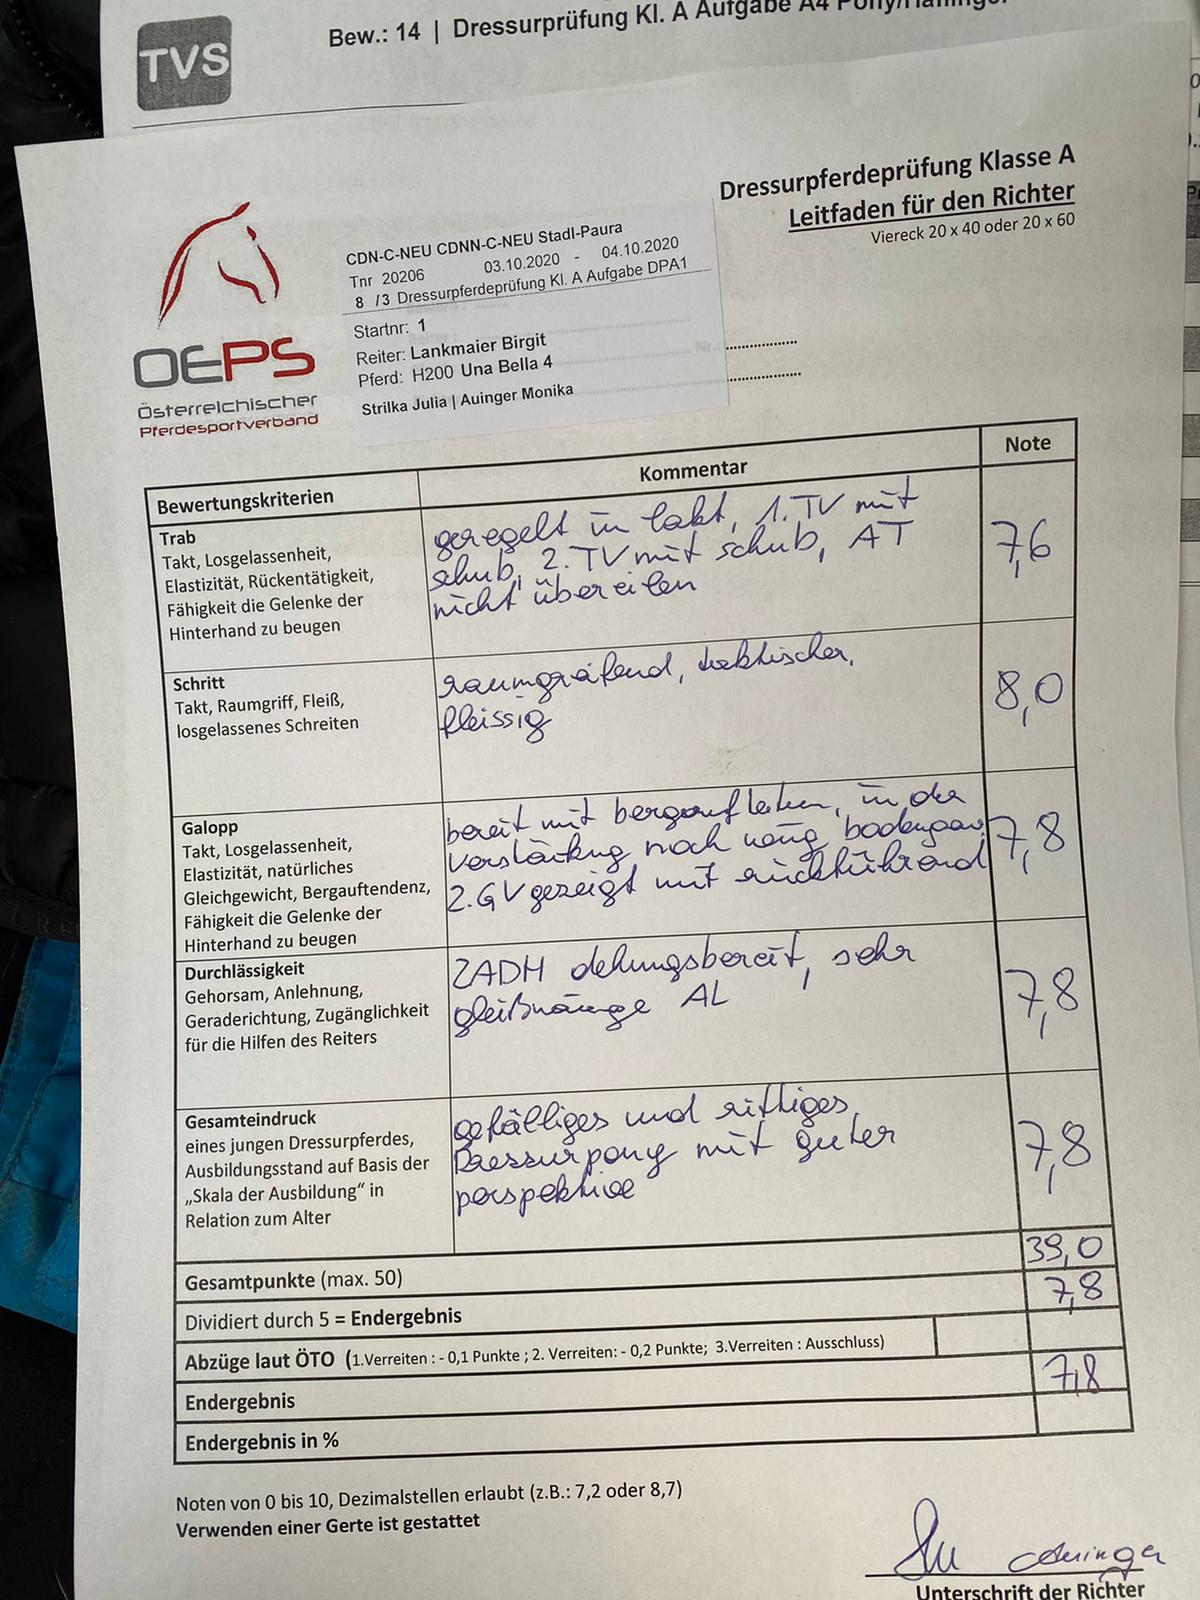 TVS
Bew.: 14 | Dressurprüfung Kl. A Aufgabe A4 Pony/Haflinger
Dressurpferdeprüfung Klasse A
Leitfaden für den Richter
Viereck 20 x 40 oder 20 x 60
OEPS
Österreichischer
Pferdesportverband
CDN-C-NEU CDNN-C-NEU Stadl-Paura
Tnr 20206 03.10.2020 - 04.10.2020
8 /3 Dressurpferdeprüfung Kl. A Aufgabe DPA1
Startnr: 1
Reiter: Lankmaier Birgit
Pferd: H200 Una Bella 4
Strilka Julia | Auinger Monika
Bewertungskriterien Kommentar Note
Trab
Takt, Losgelassenheit,
Elastizität, Rückentätigkeit,
Fähigkeit die Gelenke der
Hinterhand zu beugen
geregelt in takt, 1. TV mit
schub, 2. TV mit schub, AT
nicht übereilen
7,6
Schritt
Takt, Raumgriff, Fleiß,
losgelassenes Schreiten
raumgreifend, taktsicher,
fleissig
8,0
Galopp
Takt, Losgelassenheit,
Elastizität, natürliches
Gleichgewicht, Bergauftendenz,
Fähigkeit die Gelenke der
Hinterhand zu beugen
bereit mit bergauf in der
Verstärkung noch wenig
2. GV gezeigt mit rückführend
7,8
Durchlässigkeit
Gehorsam, Anlehnung,
Geraderichtung, Zugänglichkeit
für die Hilfen des Reiters
ZADH dehnungsbereit, sehr
AL
7,8
Gesamteindruck
eines jungen Dressurpferdes,
Ausbildungsstand auf Basis der
„Skala der Ausbildung“ in
Relation zum Alter
gefälliges und rittiges
Dressurpony mit guter
perspektive
7,8
Gesamtpunkte (max. 50) 39,0
Dividiert durch 5 = Endergebnis 7,8
Abzüge laut ÖTO (1.Verreiten : - 0,1 Punkte ; 2. Verreiten: - 0,2 Punkte; 3.Verreiten : Ausschluss)
Endergebnis 7,8
Endergebnis in %
Noten von 0 bis 10, Dezimalstellen erlaubt (z.B.: 7,2 oder 8,7)
Verwenden einer Gerte ist gestattet
Unterschrift der Richter